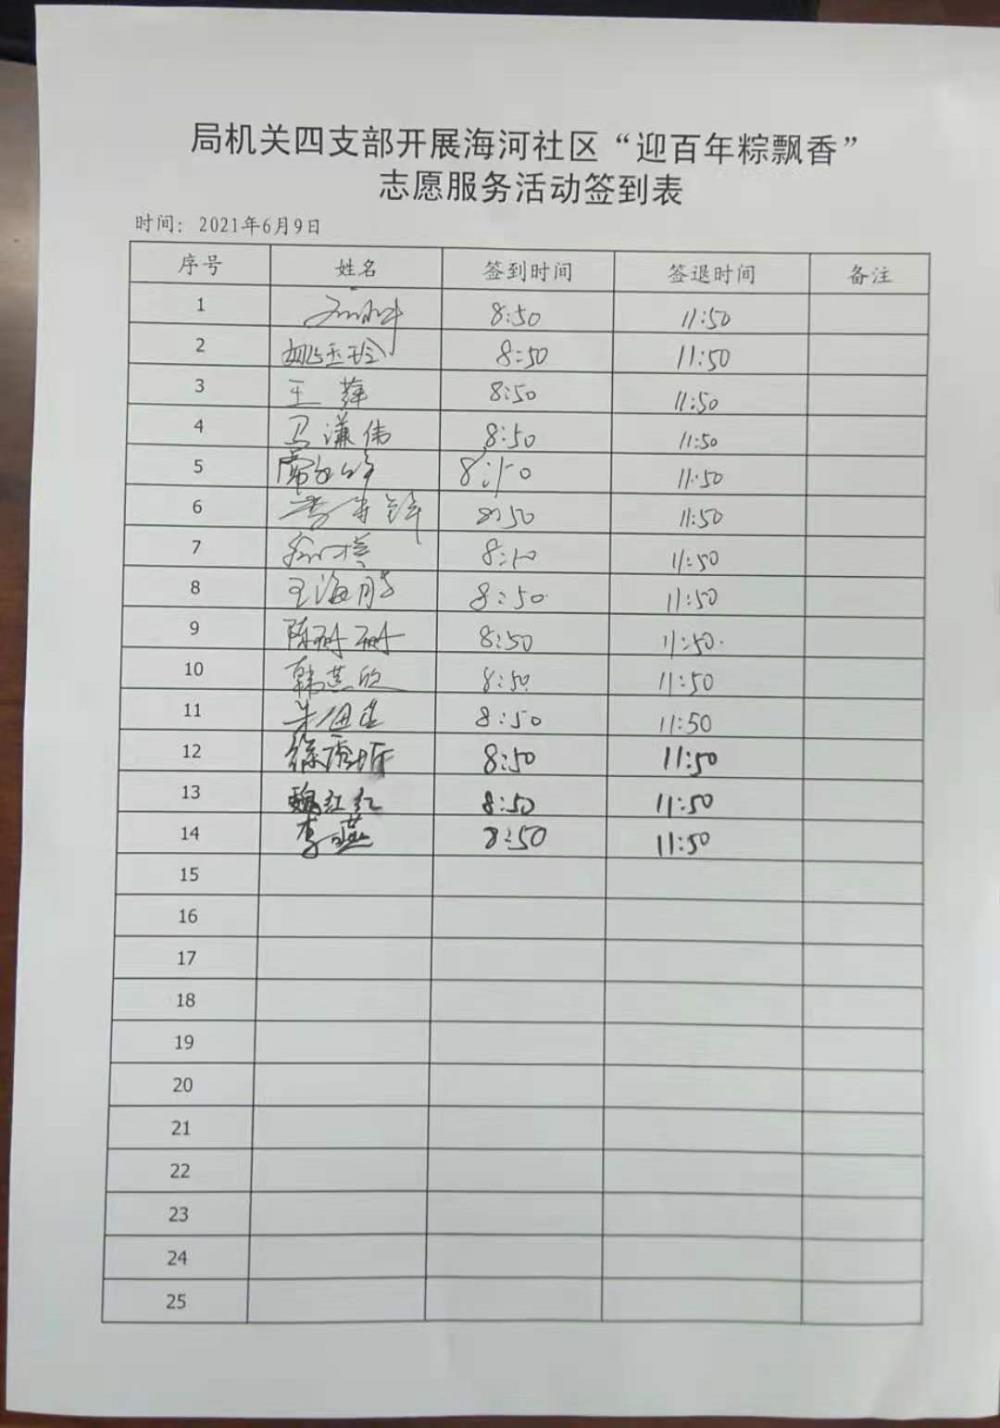 局机关四支部开展海河社区“迎百年粽飘香”
志愿服务活动签到表
时间：2021年6月9日
序号 姓名 签到时间 签退时间 备注
1 8:50 11:50
2 姚玉玲 8:50 11:50
3 王萍 8:50 11:50
4 马谦伟 8:50 11:50
5 8:50 11:50
6 8:50 11:50
7 8:50 11:50
8 王海鹏 8:50 11:50
9 陈耐耐 8:50 11:50
10 韩燕欣 8:50 11:50
11 8:50 11:50
12 8:50 11:50
13 魏红红 8:50 11:50
14 李燕 8:50 11:50
15
16
17
18
19
20
21
22
23
24
25